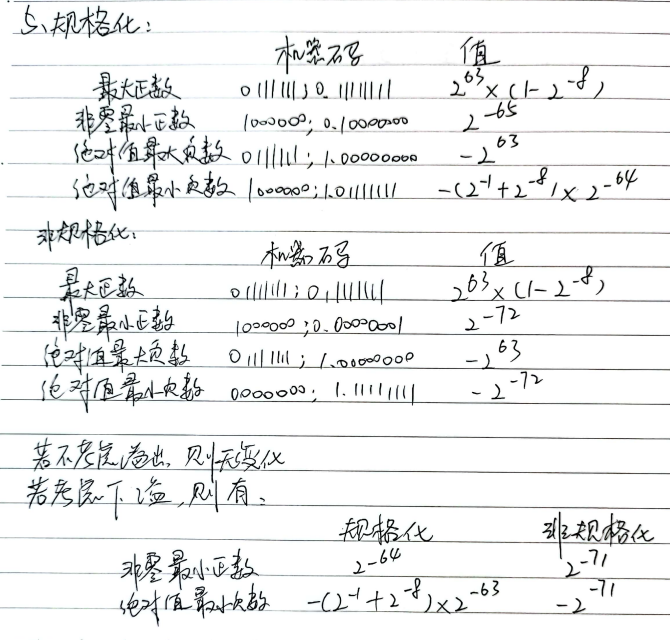 5、规格化:
机器码 值
最大正数 0111111; 0.11111111 2^63×(1-2^-8)
非零最小正数 1000000; 0.10000000 2^-65
绝对值最大负数 0111111; 1.00000000 -2^63
绝对值最小负数 1000000; 1.01111111 -(2^-1+2^-8)×2^-64
非规格化:
机器码 值
最大正数 0111111; 0.11111111 2^63×(1-2^-8)
非零最小正数 1000000; 0.00000001 2^-72
绝对值最大负数 0111111; 1.00000000 -2^63
绝对值最小负数 0000000; 1.11111111 -2^-72
若不考虑溢出,则无变化
若考虑下溢,则有:
规格化 非规格化
非零最小正数 2^-64 2^-71
绝对值最小负数 -(2^-1+2^-8)×2^-63 -2^-71